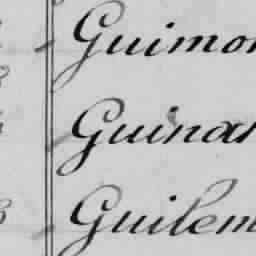 Guimon
Guinar
Guilem